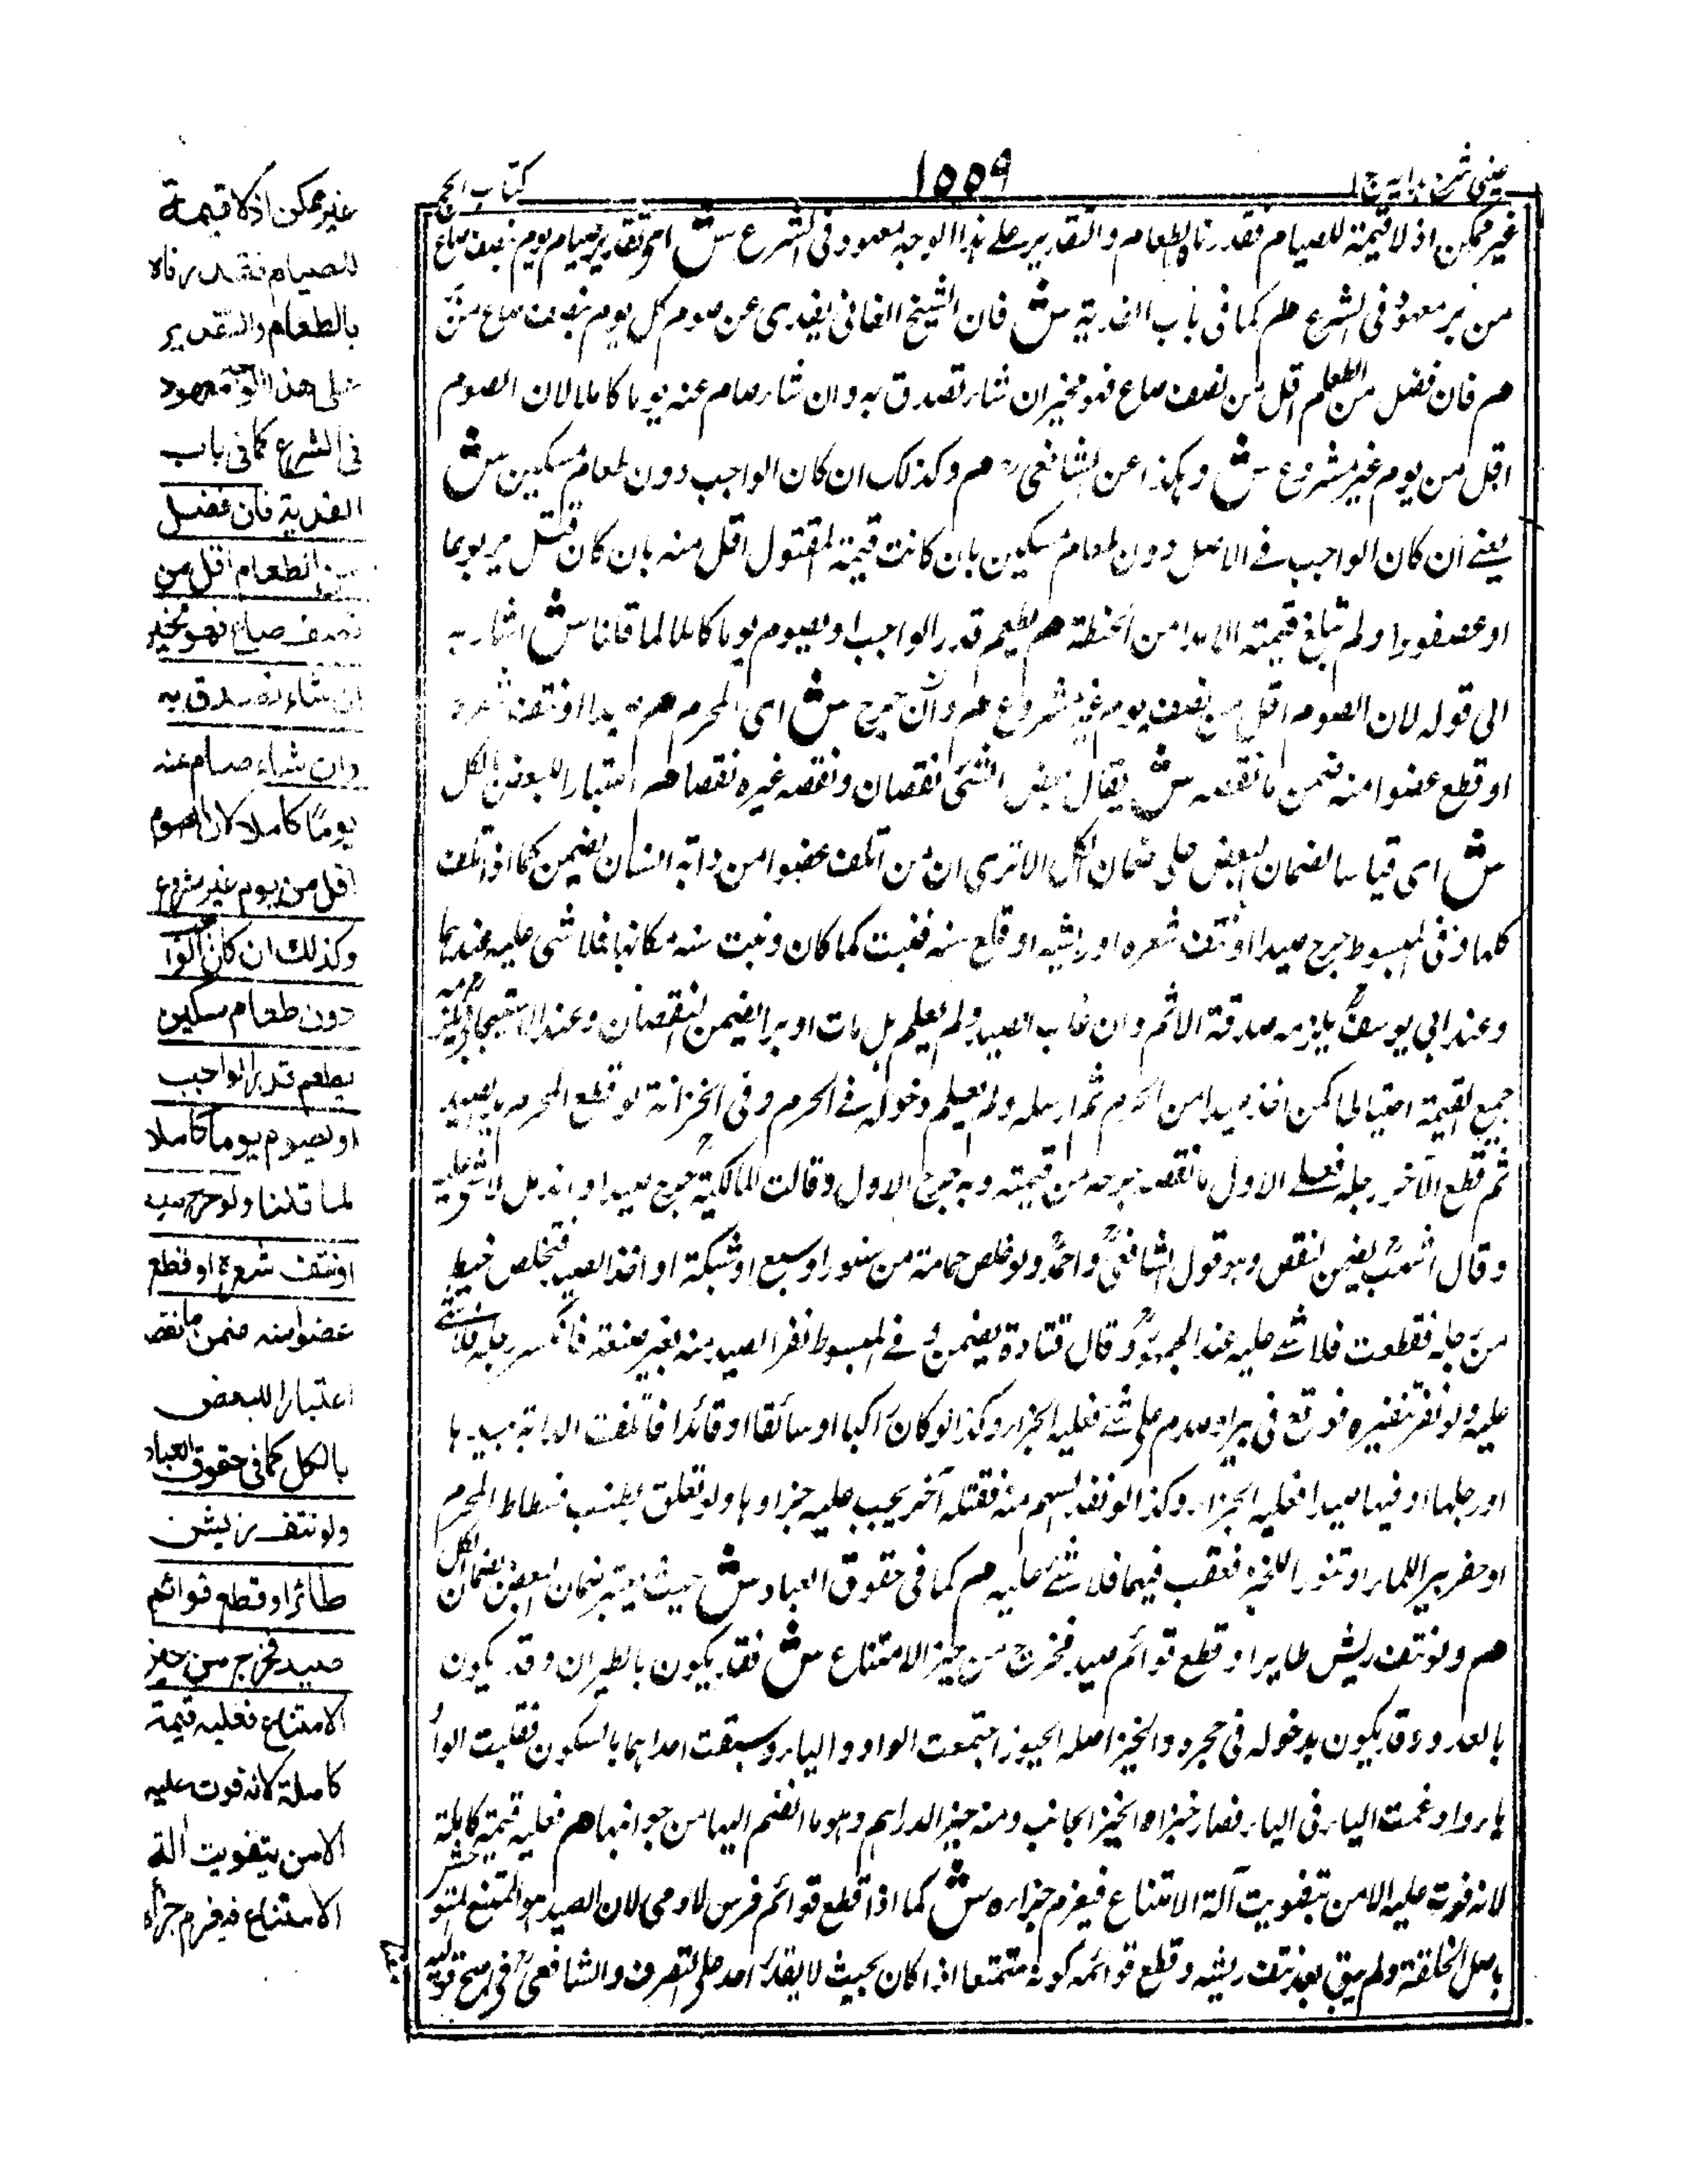 عینی شرح ہدایہ ج ۱
۱۵۵۹
کتاب الحج
غیر ممکن اذ لا قیمة للصیام فقدرناه بالطعام والتقدیر علے ہذا الوجہ معہود فی الشرع ش ای تقدیر صیام یوم بنصف صاع
من بر معہود فی الشرع م کما فی باب الفدیة ش فان الشیخ الفانی یفدی عن صوم کل یوم بنصف صاع من
م فان فضل من الطعام اقل من نصف صاع فہو مخیر ان شاء تصدق بہ وان شاء صام عنہ یوما کاملا لان الصوم
اقل من یوم غیر مشروع ش وہکذا عن الشافعی رح م وکذلک ان کان الواجب دون طعام مسکین ش
یعنے ان کان الواجب فے الاصل دون طعام مسکین بان کانت قیمة المقتول اقل منہ بان کان قتل یربوعا
او عصفورا ولم تبلغ قیمتہ الا مدا من الحنطة م یطعم قدر الواجب او یصوم یوما کاملا لما قلنا ش اشار بہ
الی قولہ لان الصوم اقل من نصف یوم غیر مشروع م وان جرح ش ای المحرم م صیدا او نتف شعرہ
او قطع عضوا منہ ضمن ما نقصہ ش یقال نقص الشئ نقصان ونقصہ غیرہ نقصا م اعتبارا للبعض بالکل
ش ای قیاسا لضمان البعض علی ضمان الکل الا تری ان من اتلف عضوا من دابة انسان یضمن کما اذا اتلف
کلہا وفی المبسوط جرح صیدا او نتف شعرہ او ریشہ او قلع سنہ فنبت کما کان ونبت سنہ مکانہا فلا شی علیہ عندہما
وعند ابی یوسف یلزمہ صدقة الالم وان غاب الصید ولم یعلم ہل مات او برا یضمن النقصان وعند الاستیجابی یلزمہ
جمیع القیمة احتیاطا کمن اخذ صیدا من الحرم ثم ارسلہ ولم یعلم دخولہ فے الحرم وفی الخزانة لو قطع المحرم ید صید
ثم قطع الآخر رجلہ فعلے الاول ما نقصہ جرحہ من قیمتہ وبہ جرح الاول وقالت المالکیة جرح صیدا واندمل لا شی علیہ
وقال اشہب یضمن النقص وہو قول الشافعی واحمد ولو خلص حمامة من سنور او سبع او شبکة او اخذ الصید فیخلص خیط
من رجلہ فقطعت فلا شے علیہ عند الجمہور وقال قتادة یضمن وفے المبسوط نفر الصید منہ بغیر صنعہ فانکسر رجلہ فلا شے
علیہ ولو نفر بتنفیرہ فوقع فی بیر او صدم علی شے فعلیہ الجزاء وکذا لو کان راکبا او سائقا او قائدا فاتلفت الدابة بیدہا
او رجلہا او فیہا صیدا فعلیہ الجزاء وکذا لو نفذ السہم منہ فقتلہ آخر یجب علیہ جزاوہا ولو تعلق بطنب فسطاط المحرم
او حفر بیر اللماء او تنور اللخبز فعقب فیہا فلا شے علیہ م کما فی حقوق العباد ش حیث یعتبر ضمان البعض بضمان الکل
م ولو نتف ریش طایر او قطع قوائم صید فخرج من حیز الامتناع ش فقد یکون بالطیران وقد یکون
بالعدو وقد یکون بدخولہ فی جحرہ والحیز اصلہ الحیوز اجتمعت الواو والیاء وسبقت احداہما بالسکون فقلبت الواو
یاء وادغمت الیاء فی الیاء فصار حیزا والحیز الجانب ومنہ حیز الدار ای وہو ما انضم الیہا من جوانبہا م فعلیہ قیمتہ کاملة
لانہ فوت علیہ الامن بتفویت آلة الامتناع فیغرم جزاءہ ش کما اذا قطع قوائم فرس لاومی لان الصید ہو الممتنع المتوحش
باصل الخلقة ولم یبق بعد نتف ریشہ وقطع قوائمہ کونہ ممتنعا اذا کان بحیث لا یقدر احد علی التصرف والشافعی رح فی اصح قولیہ
غیر ممکن اذ لا قیمة
للصیام فقدرناه
بالطعام والتقدیر
علی هذا الوجه معهود
فی الشرع کما فی باب
الفدیة فان فضل
من الطعام اقل من
نصف صاع فهو مخیر
ان شاء تصدق به
وان شاء صام عنه
یوما کاملا لان الصوم
اقل من یوم غیر مشروع
وکذلك ان کان الواجب
دون طعام مسکین
یطعم قدر الواجب
او یصوم یوما کاملا
لما قلنا ولو جرح صید
او نتف شعره او قطع
عضوا منه ضمن ما نقصه
اعتبارا للبعض
بالکل کما فی حقوق العباد
ولو نتف ریش
طائر او قطع قوائم
صید فخرج من حیز
الامتناع فعلیه قیمة
کاملة لانه فوت علیه
الامن بتفویت آلة
الامتناع فیغرم جزاء